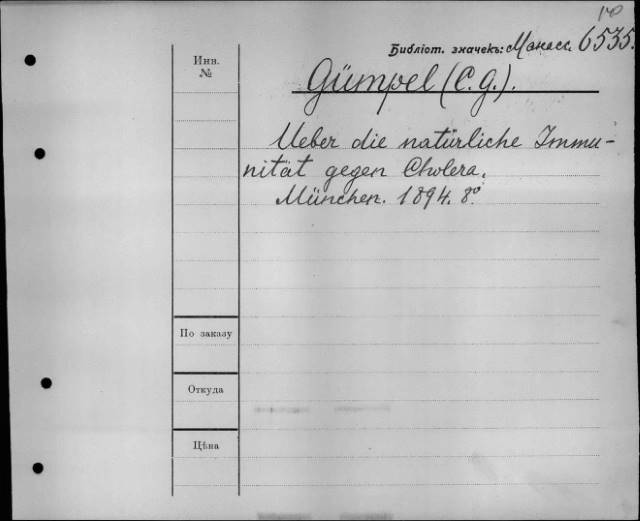 170
Библіот. значекъ: Манасс. 6535.
Инв.
№
Gümpel (C. G.).
Ueber die natürliche Immu-
nität gegen Cholera.
München. 1894. 8°
По заказу
Откуда
Цѣна